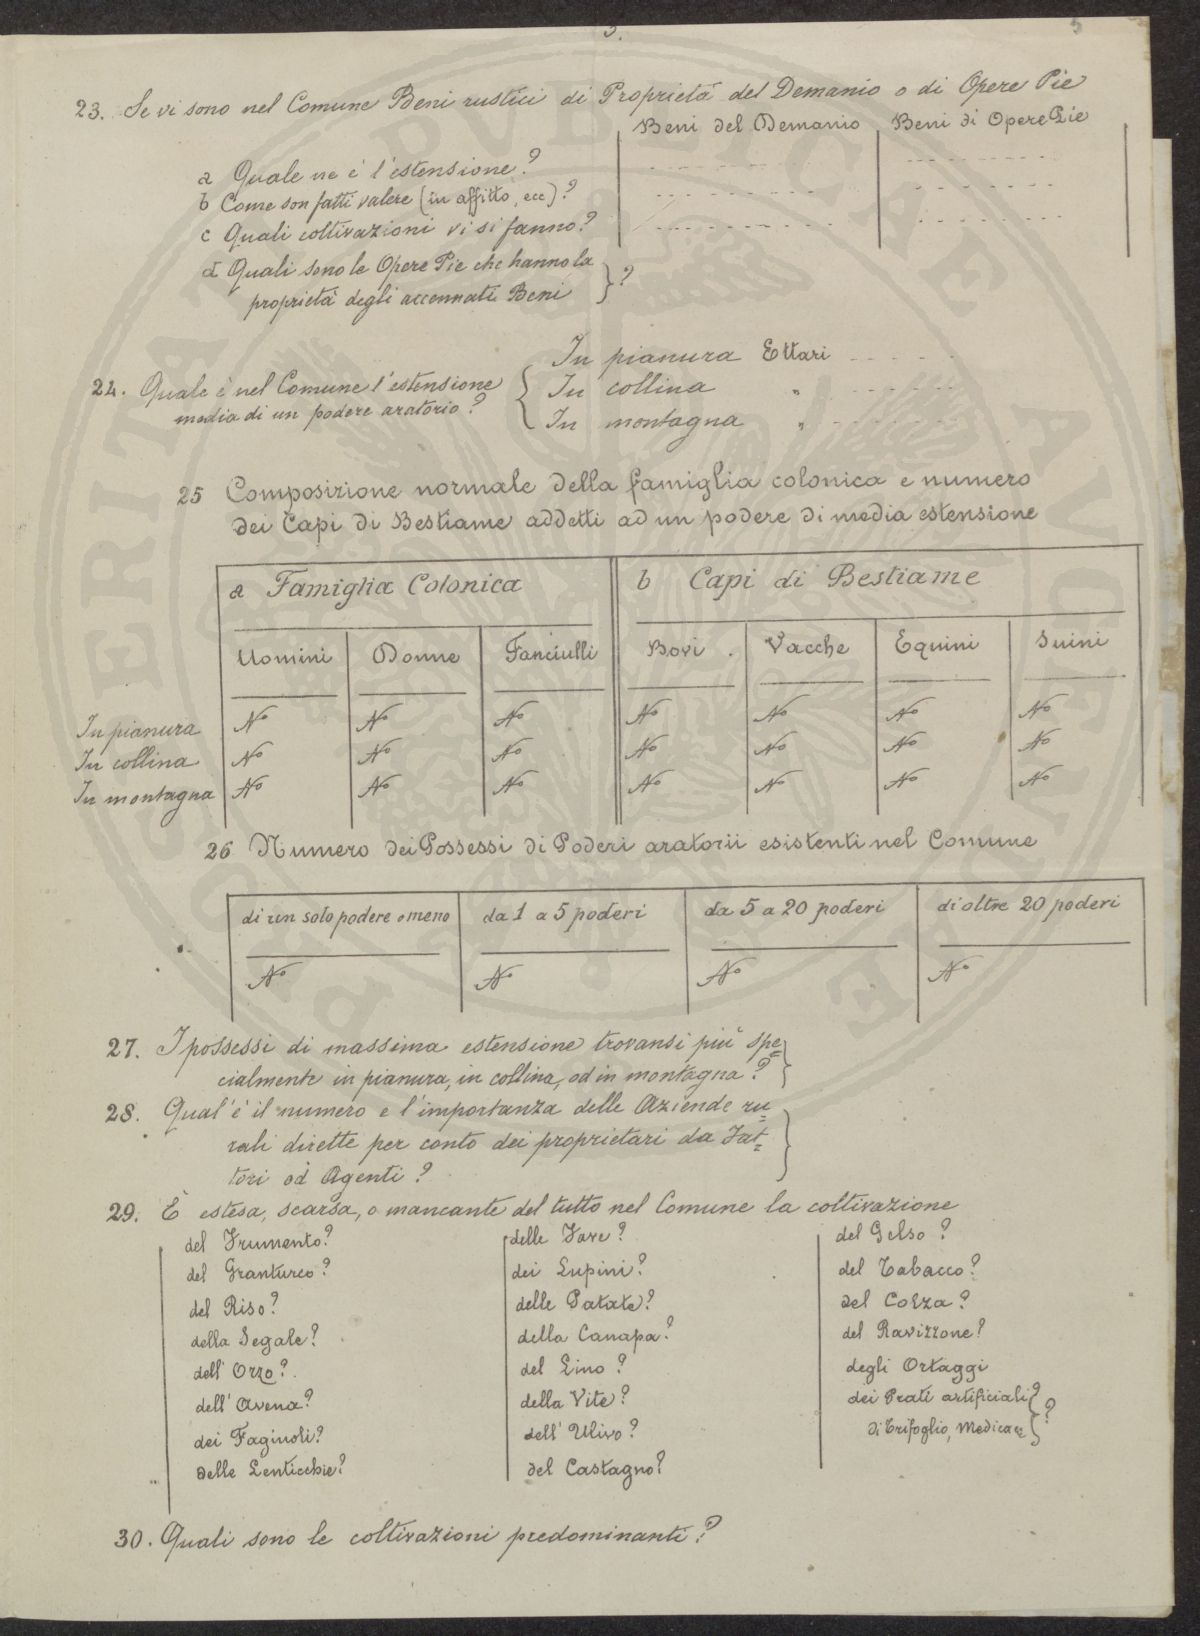 5.
5
23. Se vi sono nel Comune Beni rustici di Proprietà del Demanio o di Opere Pie
Beni del Demanio Beni di Opere Pie
a Quale ne è l'estensione?
b Come son fatti valere (in affitto, ecc)?
c Quali coltivazioni vi si fanno?
d Quali sono le Opere Pie che hanno la
proprietà degli accennati Beni ?
24. Quale è nel Comune l'estensione
media di un podere aratorio?
In pianura Ettari
In collina "
In montagna "
25 Composizione normale della famiglia colonica e numero
dei Capi di Bestiame addetti ad un podere di media estensione
a Famiglia Colonica b Capi di Bestiame
Uomini Donne Fanciulli Bovi. Vacche Equini Suini
In pianura N° N° N° N° N° N° N°
In collina N° N° N° N° N° N° N°
In montagna N° N° N° N° N° N° N°
26 Numero dei Possessi di Poderi aratorii esistenti nel Comune
di un solo podere o meno da 1 a 5 poderi da 5 a 20 poderi di oltre 20 poderi
N° N° N° N°
27. I possessi di massima estensione trovansi più spe=
cialmente in pianura, in collina, od in montagna?
28. Qual'è il numero e l'importanza delle Aziende ru=
rali dirette per conto dei proprietari da Fat=
tori od Agenti?
29. È estesa, scarsa, o mancante del tutto nel Comune la coltivazione
del Frumento?
del Granturco?
del Riso?
della Segale?
dell'Orzo?
dell'Avena?
dei Faginoli?
delle Lenticchie?
delle Fave?
dei Lupini?
delle Patate?
della Canapa?
del Lino?
della Vite?
dell'Ulivo?
del Castagno?
del Gelso?
del Tabacco?
del Colza?
del Ravizzone?
degli Ortaggi
dei Prati artificiali?
di Trifoglio, Medica ec ?
30. Quali sono le coltivazioni predominanti?